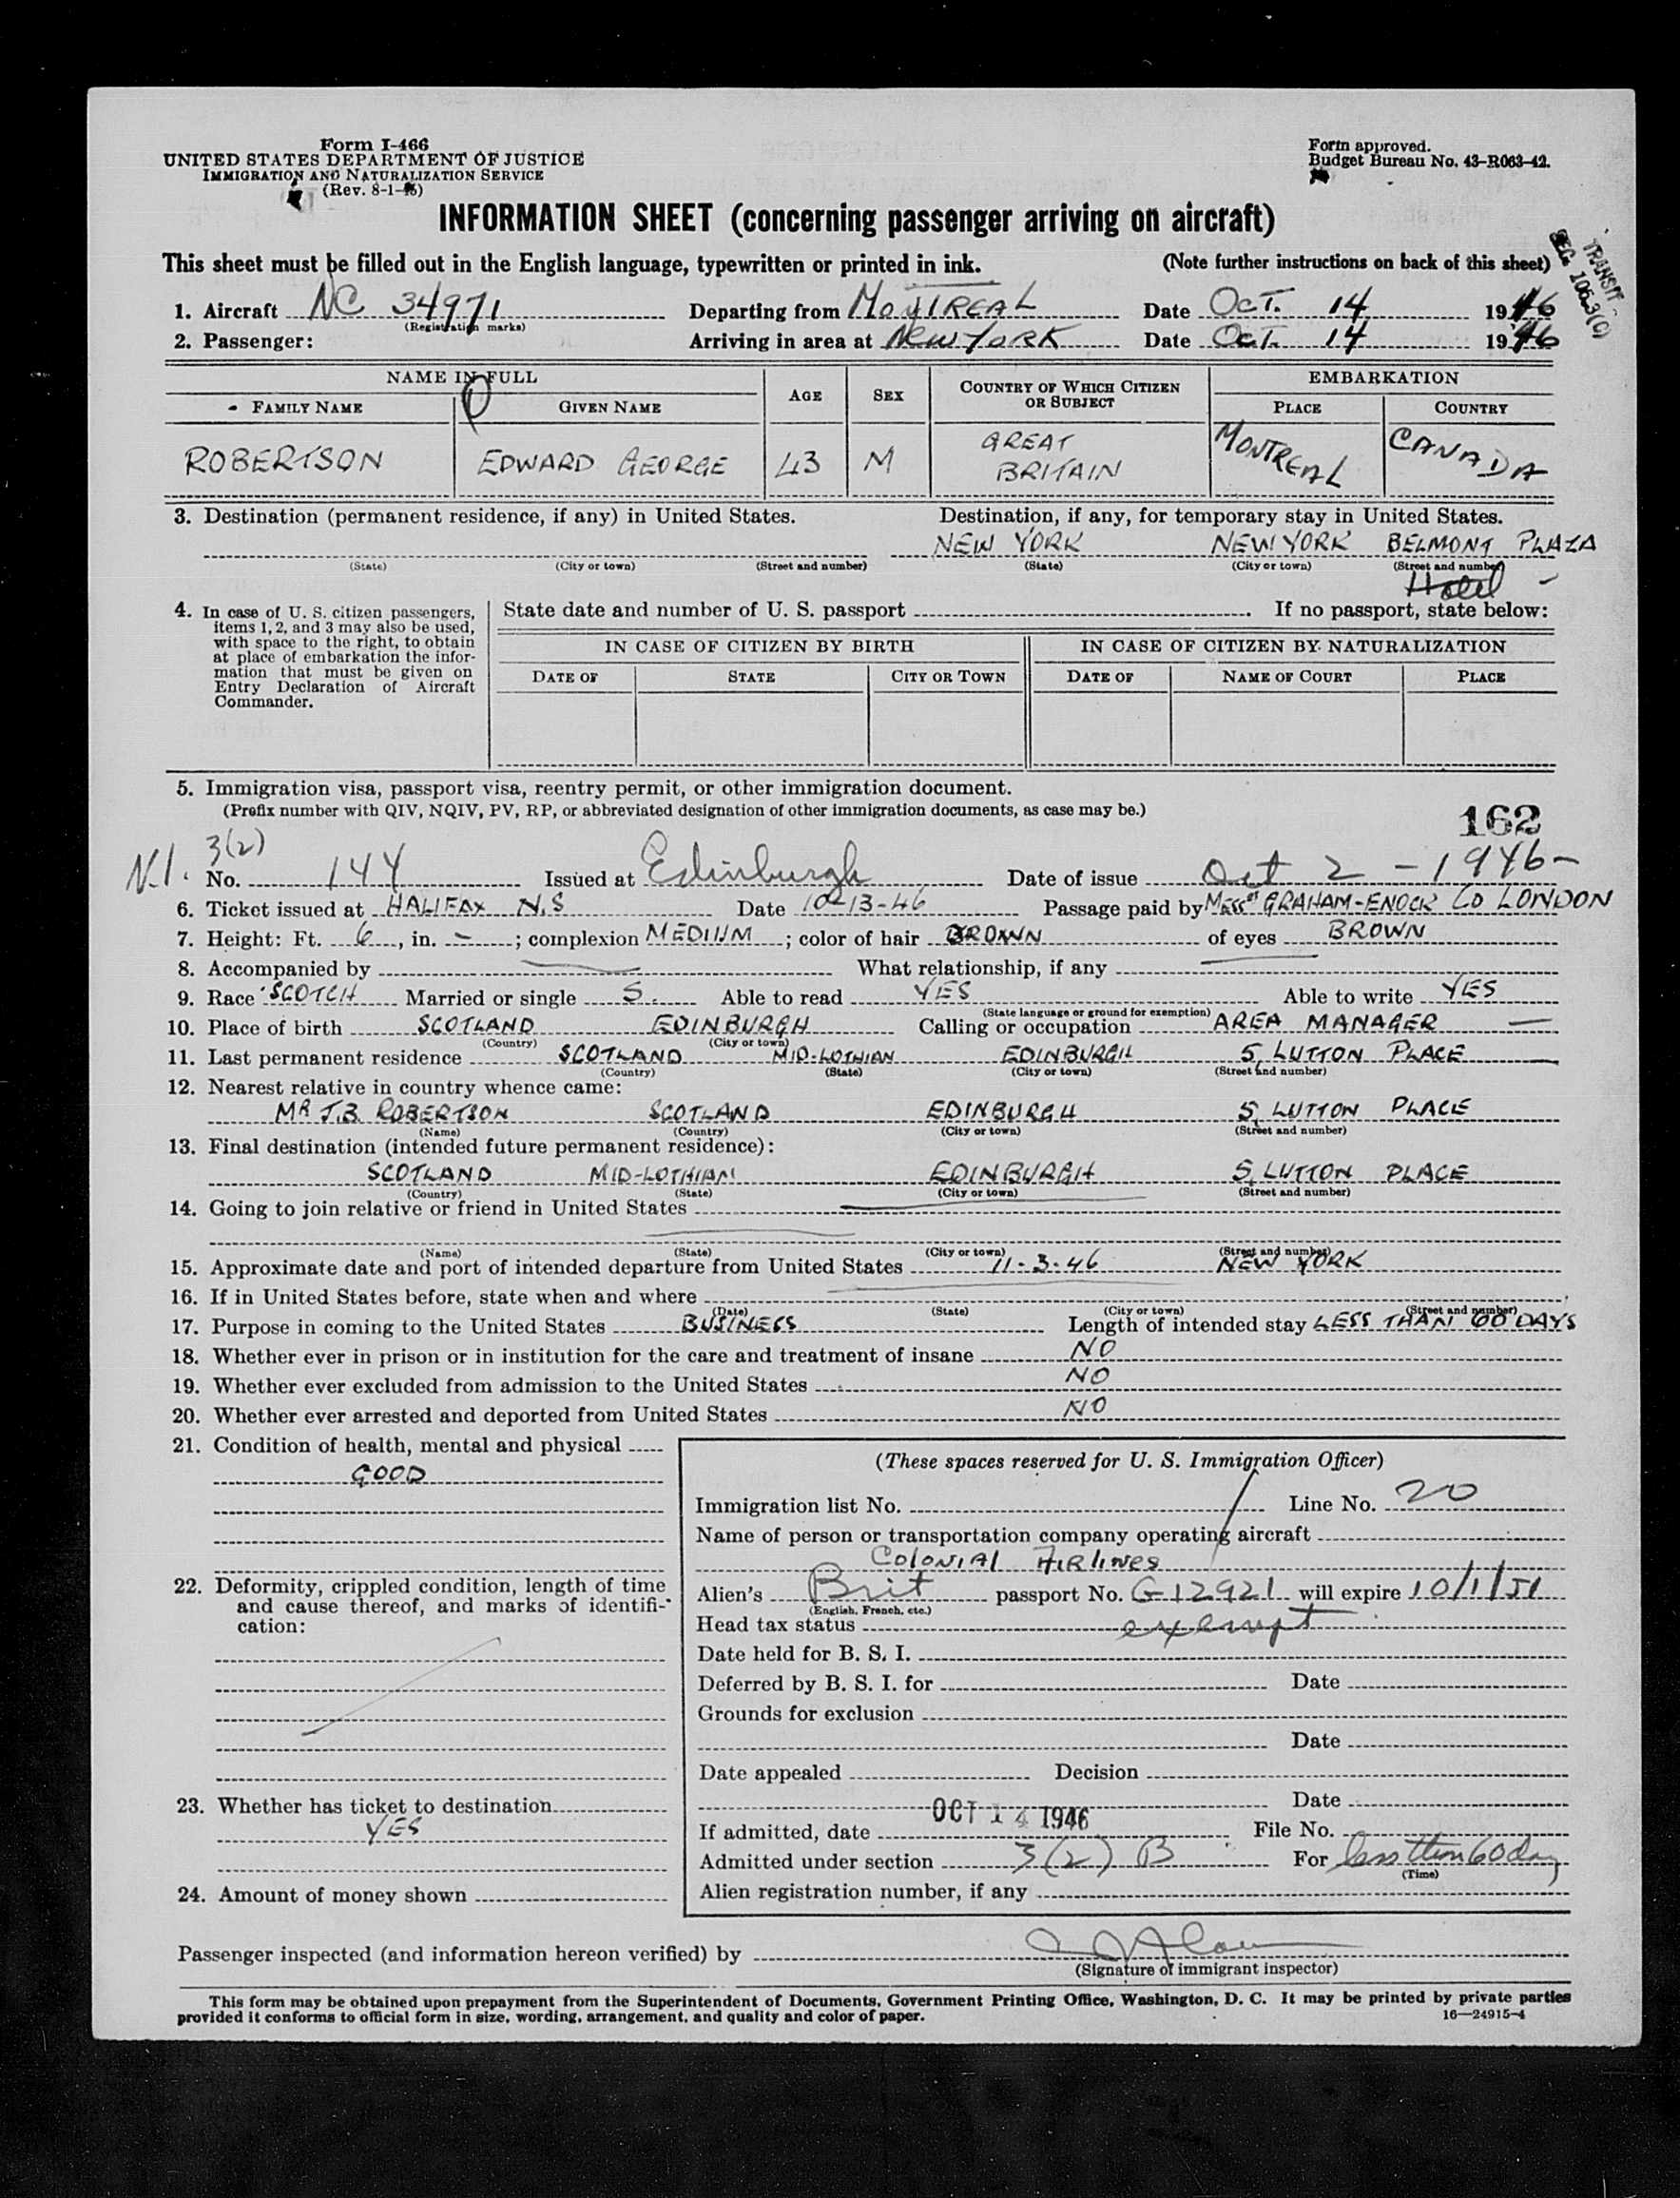 Form I-466
UNITED STATES DEPARTMENT OF JUSTICE
IMMIGRATION AND NATURALIZATION SERVICE
(Rev. 8-1-45)
Form approved.
Budget Bureau No. 43-R063-42.
INFORMATION SHEET (concerning passenger arriving on aircraft)
This sheet must be filled out in the English language, typewritten or printed in ink. (Note further instructions on back of this sheet)
TRANSIT
SEC. 1063(C)
1. Aircraft NC 34971 Departing from MONTREAL Date OCT. 14 1946
(Registration marks)
2. Passenger: Arriving in area at NEW YORK Date OCT. 14 1946
NAME IN FULL AGE SEX COUNTRY OF WHICH CITIZEN OR SUBJECT EMBARKATION
FAMILY NAME GIVEN NAME PLACE COUNTRY
ROBERTSON EDWARD GEORGE 43 M GREAT BRITAIN MONTREAL CANADA
3. Destination (permanent residence, if any) in United States. Destination, if any, for temporary stay in United States.
NEW YORK NEW YORK BELMONT PLAZA
(State) (City or town) (Street and number) (State) (City or town) (Street and number)
Hotel
4. In case of U. S. citizen passengers, items 1, 2, and 3 may also be used, with space to the right, to obtain at place of embarkation the information that must be given on Entry Declaration of Aircraft Commander.
State date and number of U. S. passport . If no passport, state below:
IN CASE OF CITIZEN BY BIRTH IN CASE OF CITIZEN BY NATURALIZATION
DATE OF STATE CITY OR TOWN DATE OF NAME OF COURT PLACE
5. Immigration visa, passport visa, reentry permit, or other immigration document.
(Prefix number with QIV, NQIV, PV, RP, or abbreviated designation of other immigration documents, as case may be.)
162
3(2)
N.I. No. 144 Issued at Edinburgh Date of issue Oct 2 - 1946-
6. Ticket issued at HALIFAX N.S Date 10-13-46 Passage paid by MESSRS GRAHAM-ENOCK CO LONDON
7. Height: Ft. 6, in. -; complexion MEDIUM; color of hair BROWN of eyes BROWN
8. Accompanied by What relationship, if any
9. Race SCOTCH Married or single S. Able to read YES Able to write YES
(State language or ground for exemption)
10. Place of birth SCOTLAND EDINBURGH Calling or occupation AREA MANAGER
(Country) (City or town)
11. Last permanent residence SCOTLAND MID-LOTHIAN EDINBURGH 5, LUTTON PLACE
(Country) (State) (City or town) (Street and number)
12. Nearest relative in country whence came:
MR J.B. ROBERTSON SCOTLAND EDINBURGH 5, LUTTON PLACE
(Name) (Country) (City or town) (Street and number)
13. Final destination (intended future permanent residence):
SCOTLAND MID-LOTHIAN EDINBURGH 5, LUTTON PLACE
(Country) (State) (City or town) (Street and number)
14. Going to join relative or friend in United States
(Name) (State) (City or town) (Street and number)
15. Approximate date and port of intended departure from United States 11-3-46 NEW YORK
16. If in United States before, state when and where
(Date) (State) (City or town) (Street and number)
17. Purpose in coming to the United States BUSINESS Length of intended stay LESS THAN 60 DAYS
18. Whether ever in prison or in institution for the care and treatment of insane NO
19. Whether ever excluded from admission to the United States NO
20. Whether ever arrested and deported from United States NO
21. Condition of health, mental and physical
GOOD
22. Deformity, crippled condition, length of time and cause thereof, and marks of identification:
23. Whether has ticket to destination
YES
24. Amount of money shown
(These spaces reserved for U. S. Immigration Officer)
Immigration list No. Line No. 20
Name of person or transportation company operating aircraft
COLONIAL AIRLINES
Alien's Brit passport No. G-12921 will expire 10/1/51
(English, French, etc.)
Head tax status exempt
Date held for B. S. I.
Deferred by B. S. I. for Date
Grounds for exclusion
Date
Date appealed Decision
Date
If admitted, date OCT 14 1946 File No.
Admitted under section 3(2) B For less then 60 day
(Time)
Alien registration number, if any
Passenger inspected (and information hereon verified) by
(Signature of immigrant inspector)
This form may be obtained upon prepayment from the Superintendent of Documents, Government Printing Office, Washington, D. C. It may be printed by private parties
provided it conforms to official form in size, wording, arrangement, and quality and color of paper. 16—24915-4